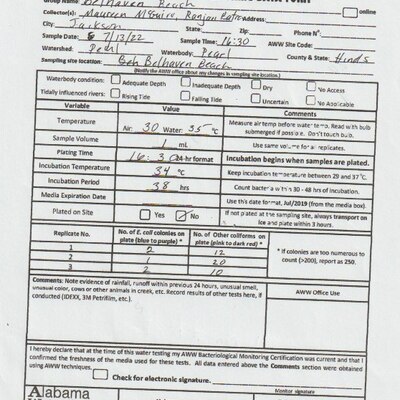 Group Name Belhaven Beach
Collector(s): Maureen McGuire, Ranjan
online
City: Jackson State: Zip: Phone N°:
Sample Date: 7/13/22 Sample Time: 16:30 AWW Site Code:
Watershed: Pearl Waterbody: Pearl County & State: Hinds
Sampling site location: Belhaven Beach
(Notify the AWW office about any changes in sampling site location.)
Waterbody condition: Adequate Depth Inadequate Depth Dry No Access
Tidally influenced rivers: Rising Tide Falling Tide Uncertain No Applicable
Variable Value Comments
Temperature Air: 30 Water: 35 °C Measure air temp before water temp. Read with bulb submerged if possible. Don't touch bulb.
Sample Volume 1 mL Use same volume for all replicates.
Plating Time 16:30 24-hr format Incubation begins when samples are plated.
Incubation Temperature 34 °C Keep incubation temperature between 29 and 37 °C.
Incubation Period 38 hrs Count bacteria within 30 - 48 hrs of incubation.
Media Expiration Date Use this date format, Jul/2019 (from the media box)
Plated on Site Yes No If not plated at the sampling site, always transport on ice and plate within 3 hours.
Replicate No. No. of E. coli colonies on plate (blue to purple) * No. of Other coliforms on plate (pink to dark red) *
1 2 12
2 1 20
3 2 10
* If colonies are too numerous to count (>200), report as 250.
Comments: Note evidence of rainfall, runoff within previous 24 hours, unusual smell,
unusual color, cows or other animals in creek, etc. Record results of other tests here, if
conducted (IDEXX, 3M Petrifilm, etc.).
AWW Office Use
I hereby declare that at the time of this water testing my AWW Bacteriological Monitoring Certification was current and that I
confirmed the freshness of the media used for these tests. All data entered above the Comments section were obtained
using AWW techniques.
Check for electronic signature.
Monitor signature
Alabama